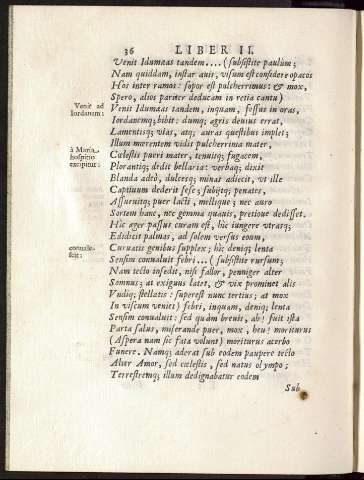 36 LIBER II.
Venit Idumæas tandem.... (subsistite paulùm;
Nam quiddam, instar auis, visum est considere opacos
Hos inter ramos: sopor est pulcherrimus: & mox,
Spero, alios pariter deducam in retia cantu)
Venit ad Iordanem:
Venit Idumæas tandem, inquam, fessus in oras,
Iordanemq; bibit: dumq; agris deuius errat,
Lamentisq; vias, atq; auras questibus implet;
Illum mœrentem vidit pulcherrima mater,
à Maria hospitio excipitur:
Cœlestis pueri mater, tenuitq; fugacem,
Plorantiq; dedit bellaria: verbaq; dixit
Blanda adeò, dulcesq; minas adiecit, vt ille
Captiuum dederit sese; subijtq; penates,
Assueuitq; puer lacti, mellique; nec auro
Sortem hanc, nec gemma quauis, pretioue dedisset.
Hic ager passus curam est, hic iungere vtrasq;
Edidicit palmas, ad solem versus eoum,
conualescit:
Curuatis genibus supplex; hic deniq; lenta
Sensim conualuit febri... (subsistite rursum;
Nam tecto insedit, nisi fallor, penniger alter
Somnus; at exiguus latet, & vix prominet alis
Vudiq; stellatis: superest nunc tertius; at mox
In viscum veniet) febri, inquam, deniq; lenta
Sensim conualuit: sed quàm breuis, ah! fuit ista
Parta salus, miserande puer, mox, heu! moriturus
(Aspera nam sic fata volunt) moriturus acerbo
Funere. Namq; aderat sub eodem paupere tecto
Alter Amor, sed cœlestis, sed natus olympo;
Terrestremq; illum dedignabatur eodem
Sub